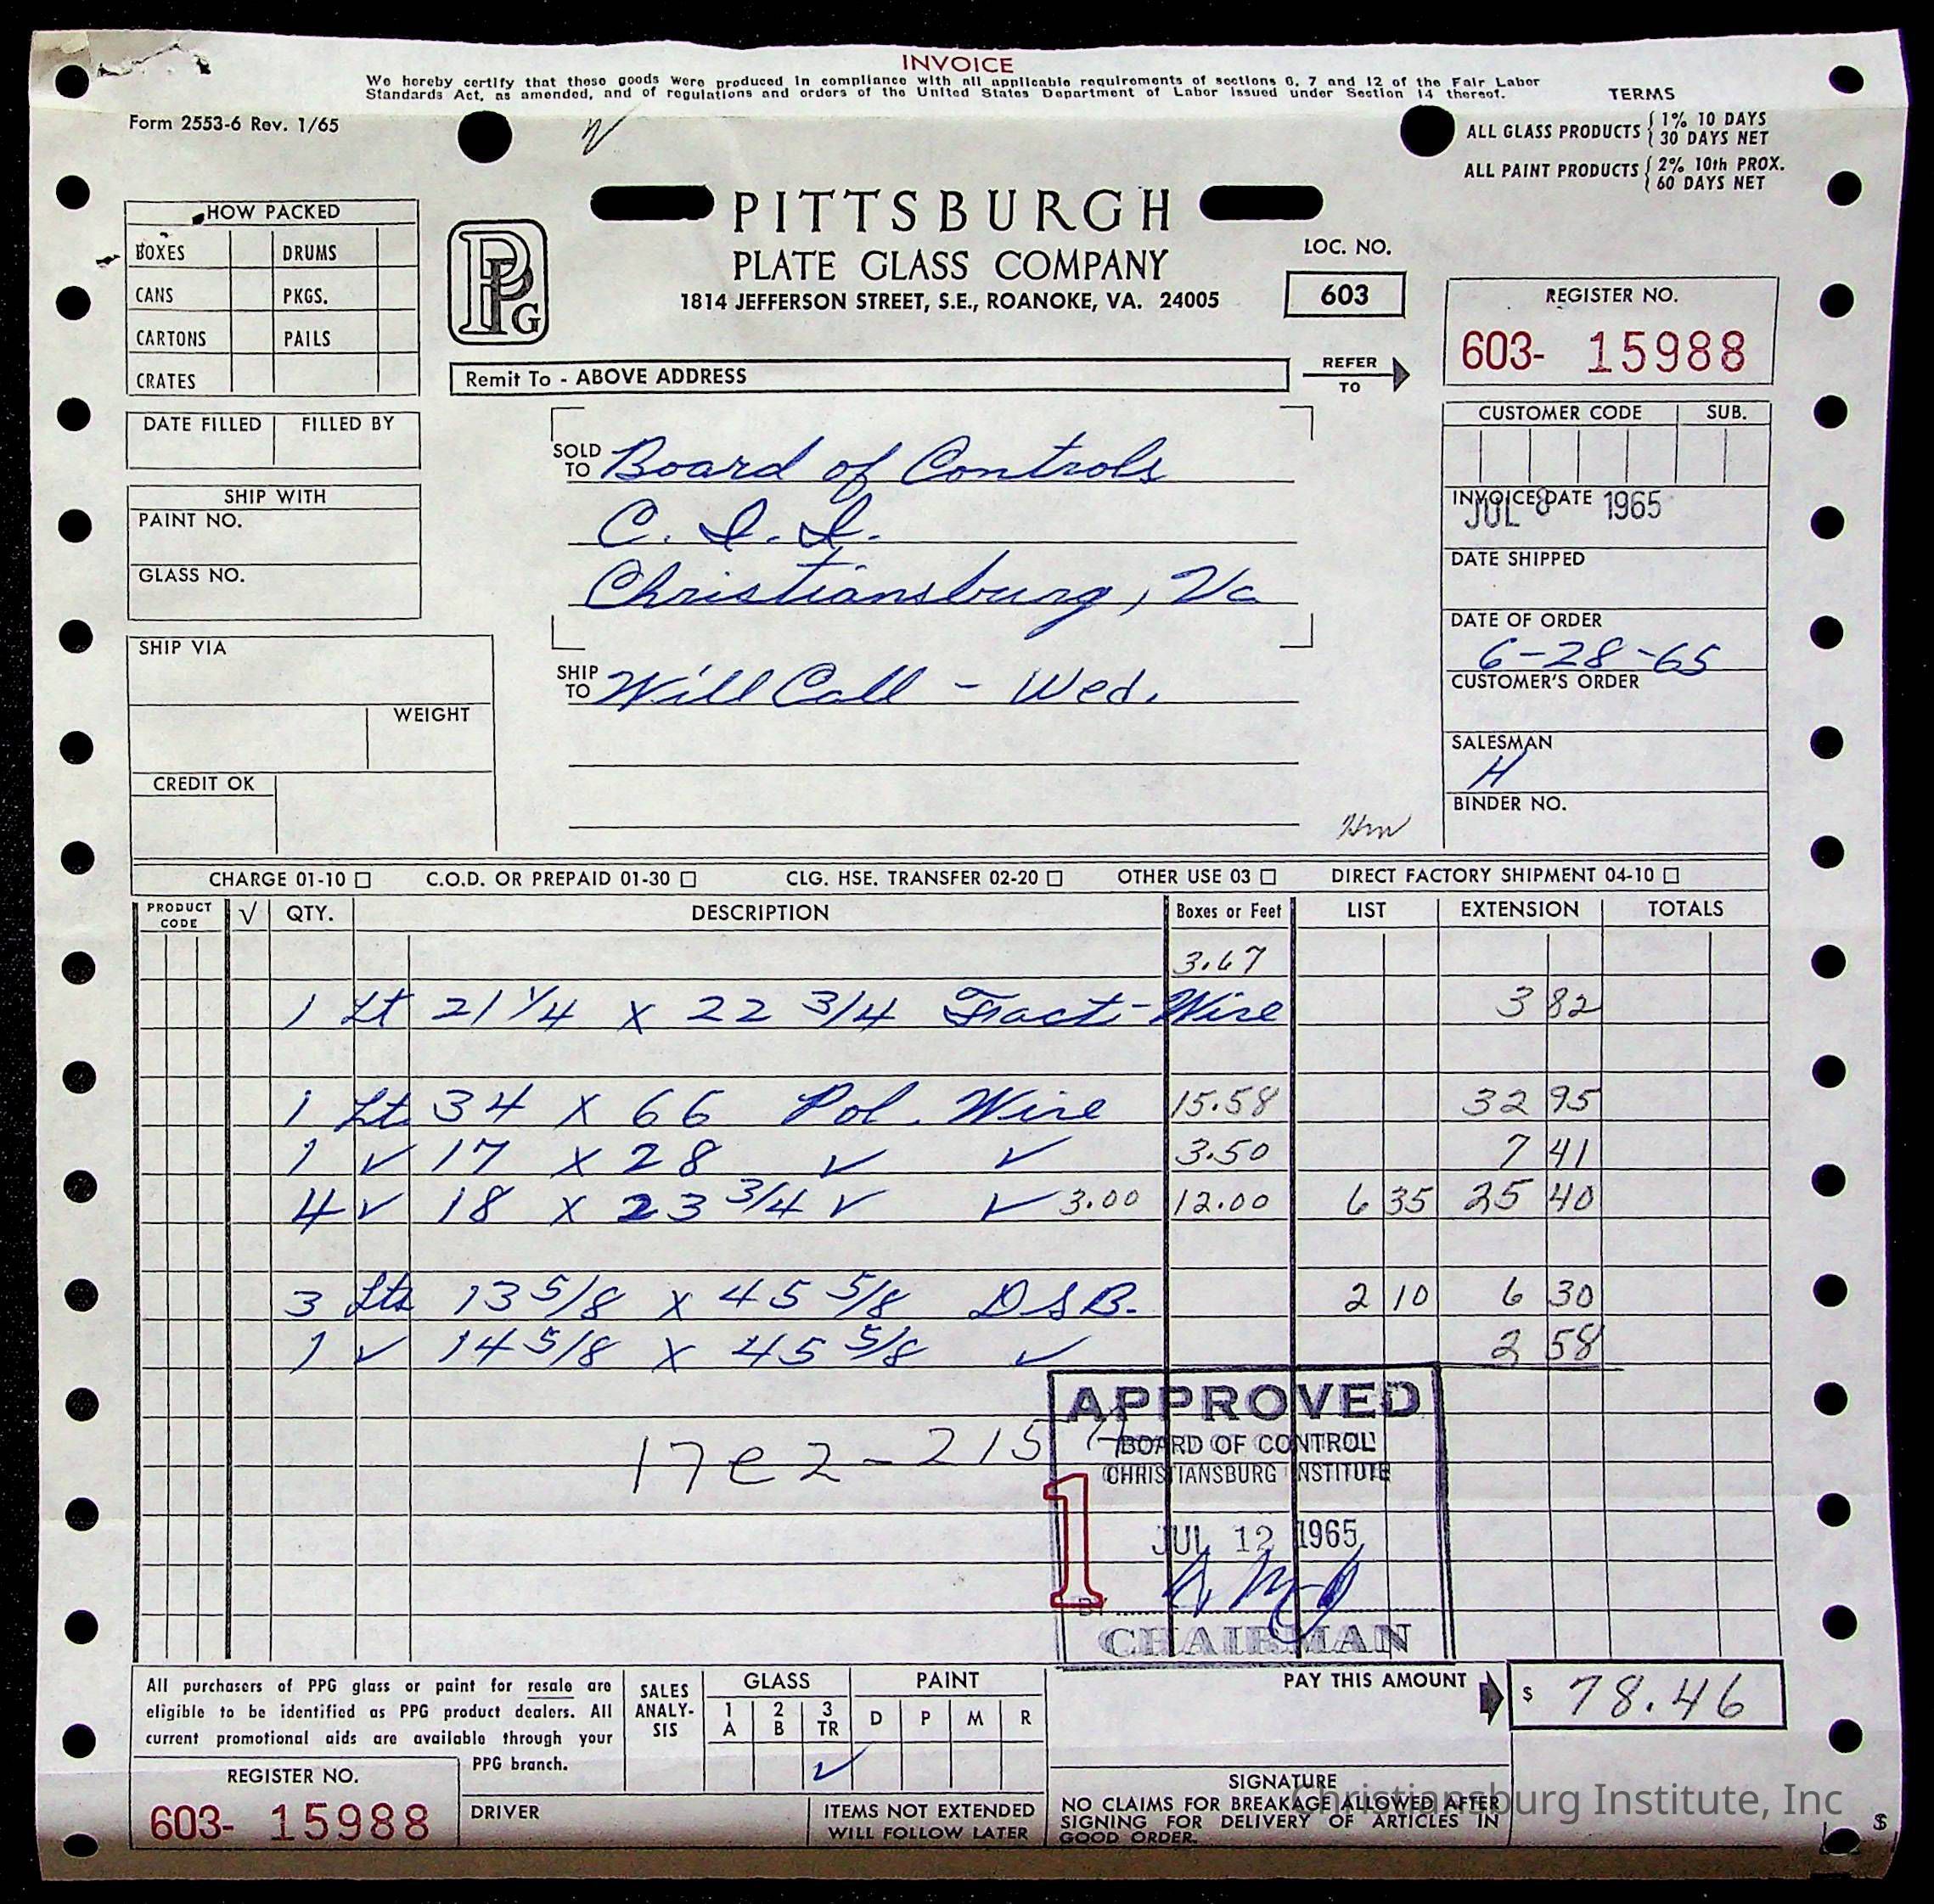 INVOICE
We hereby certify that these goods were produced in compliance with all applicable requirements of sections 6, 7 and 12 of the Fair Labor
Standards Act, as amended, and of regulations and orders of the United States Department of Labor issued under Section 14 thereof.
TERMS
ALL GLASS PRODUCTS { 1% 10 DAYS
30 DAYS NET
ALL PAINT PRODUCTS { 2% 10th PROX.
60 DAYS NET
Form 2553-6 Rev. 1/65
HOW PACKED
BOXES DRUMS
CANS PKGS.
CARTONS PAILS
CRATES
DATE FILLED FILLED BY
SHIP WITH
PAINT NO.
GLASS NO.
SHIP VIA
WEIGHT
CREDIT OK
PPG
PITTSBURGH
PLATE GLASS COMPANY
1814 JEFFERSON STREET, S.E., ROANOKE, VA. 24005
LOC. NO.
603
Remit To - ABOVE ADDRESS
REFER
TO
REGISTER NO.
603- 15988
SOLD TO Board of Controls
C. I. I.
Christiansburg, Va
SHIP TO Will Call - Wed.
CUSTOMER CODE SUB.
INVOICE DATE
JUL 8 1965
DATE SHIPPED
DATE OF ORDER
6-28-65
CUSTOMER'S ORDER
SALESMAN
H
BINDER NO.
CHARGE 01-10 □ C.O.D. OR PREPAID 01-30 □ CLG. HSE. TRANSFER 02-20 □ OTHER USE 03 □ DIRECT FACTORY SHIPMENT 04-10 □
PRODUCT CODE √ QTY. DESCRIPTION Boxes or Feet LIST EXTENSION TOTALS
3.67
1 Lt 21 1/4 x 22 3/4 Fract-Wire 3 82
1 Lt. 34 x 66 Pol. Wire 15.58 32 95
1 ✓ 17 x 28 ✓ ✓ 3.50 7 41
4 ✓ 18 x 23 3/4 ✓ ✓ 3.00 12.00 6 35 25 40
3 Lts 13 5/8 x 45 5/8 DSB. 2 10 6 30
1 ✓ 14 5/8 x 45 5/8 ✓ 2 58
17e2-215
APPROVED
BOARD OF CONTROL
CHRISTIANSBURG INSTITUTE
1
JUL 12 1965
BY
CHAIRMAN
All purchasers of PPG glass or paint for resale are
eligible to be identified as PPG product dealers. All
current promotional aids are available through your
PPG branch.
REGISTER NO.
603- 15988
SALES ANALY-SIS
GLASS PAINT
1 A 2 B 3 TR D P M R
✓
DRIVER
ITEMS NOT EXTENDED
WILL FOLLOW LATER
PAY THIS AMOUNT $ 78.46
SIGNATURE
NO CLAIMS FOR BREAKAGE ALLOWED AFTER
SIGNING FOR DELIVERY OF ARTICLES IN
GOOD ORDER.
Christiansburg Institute, Inc
$